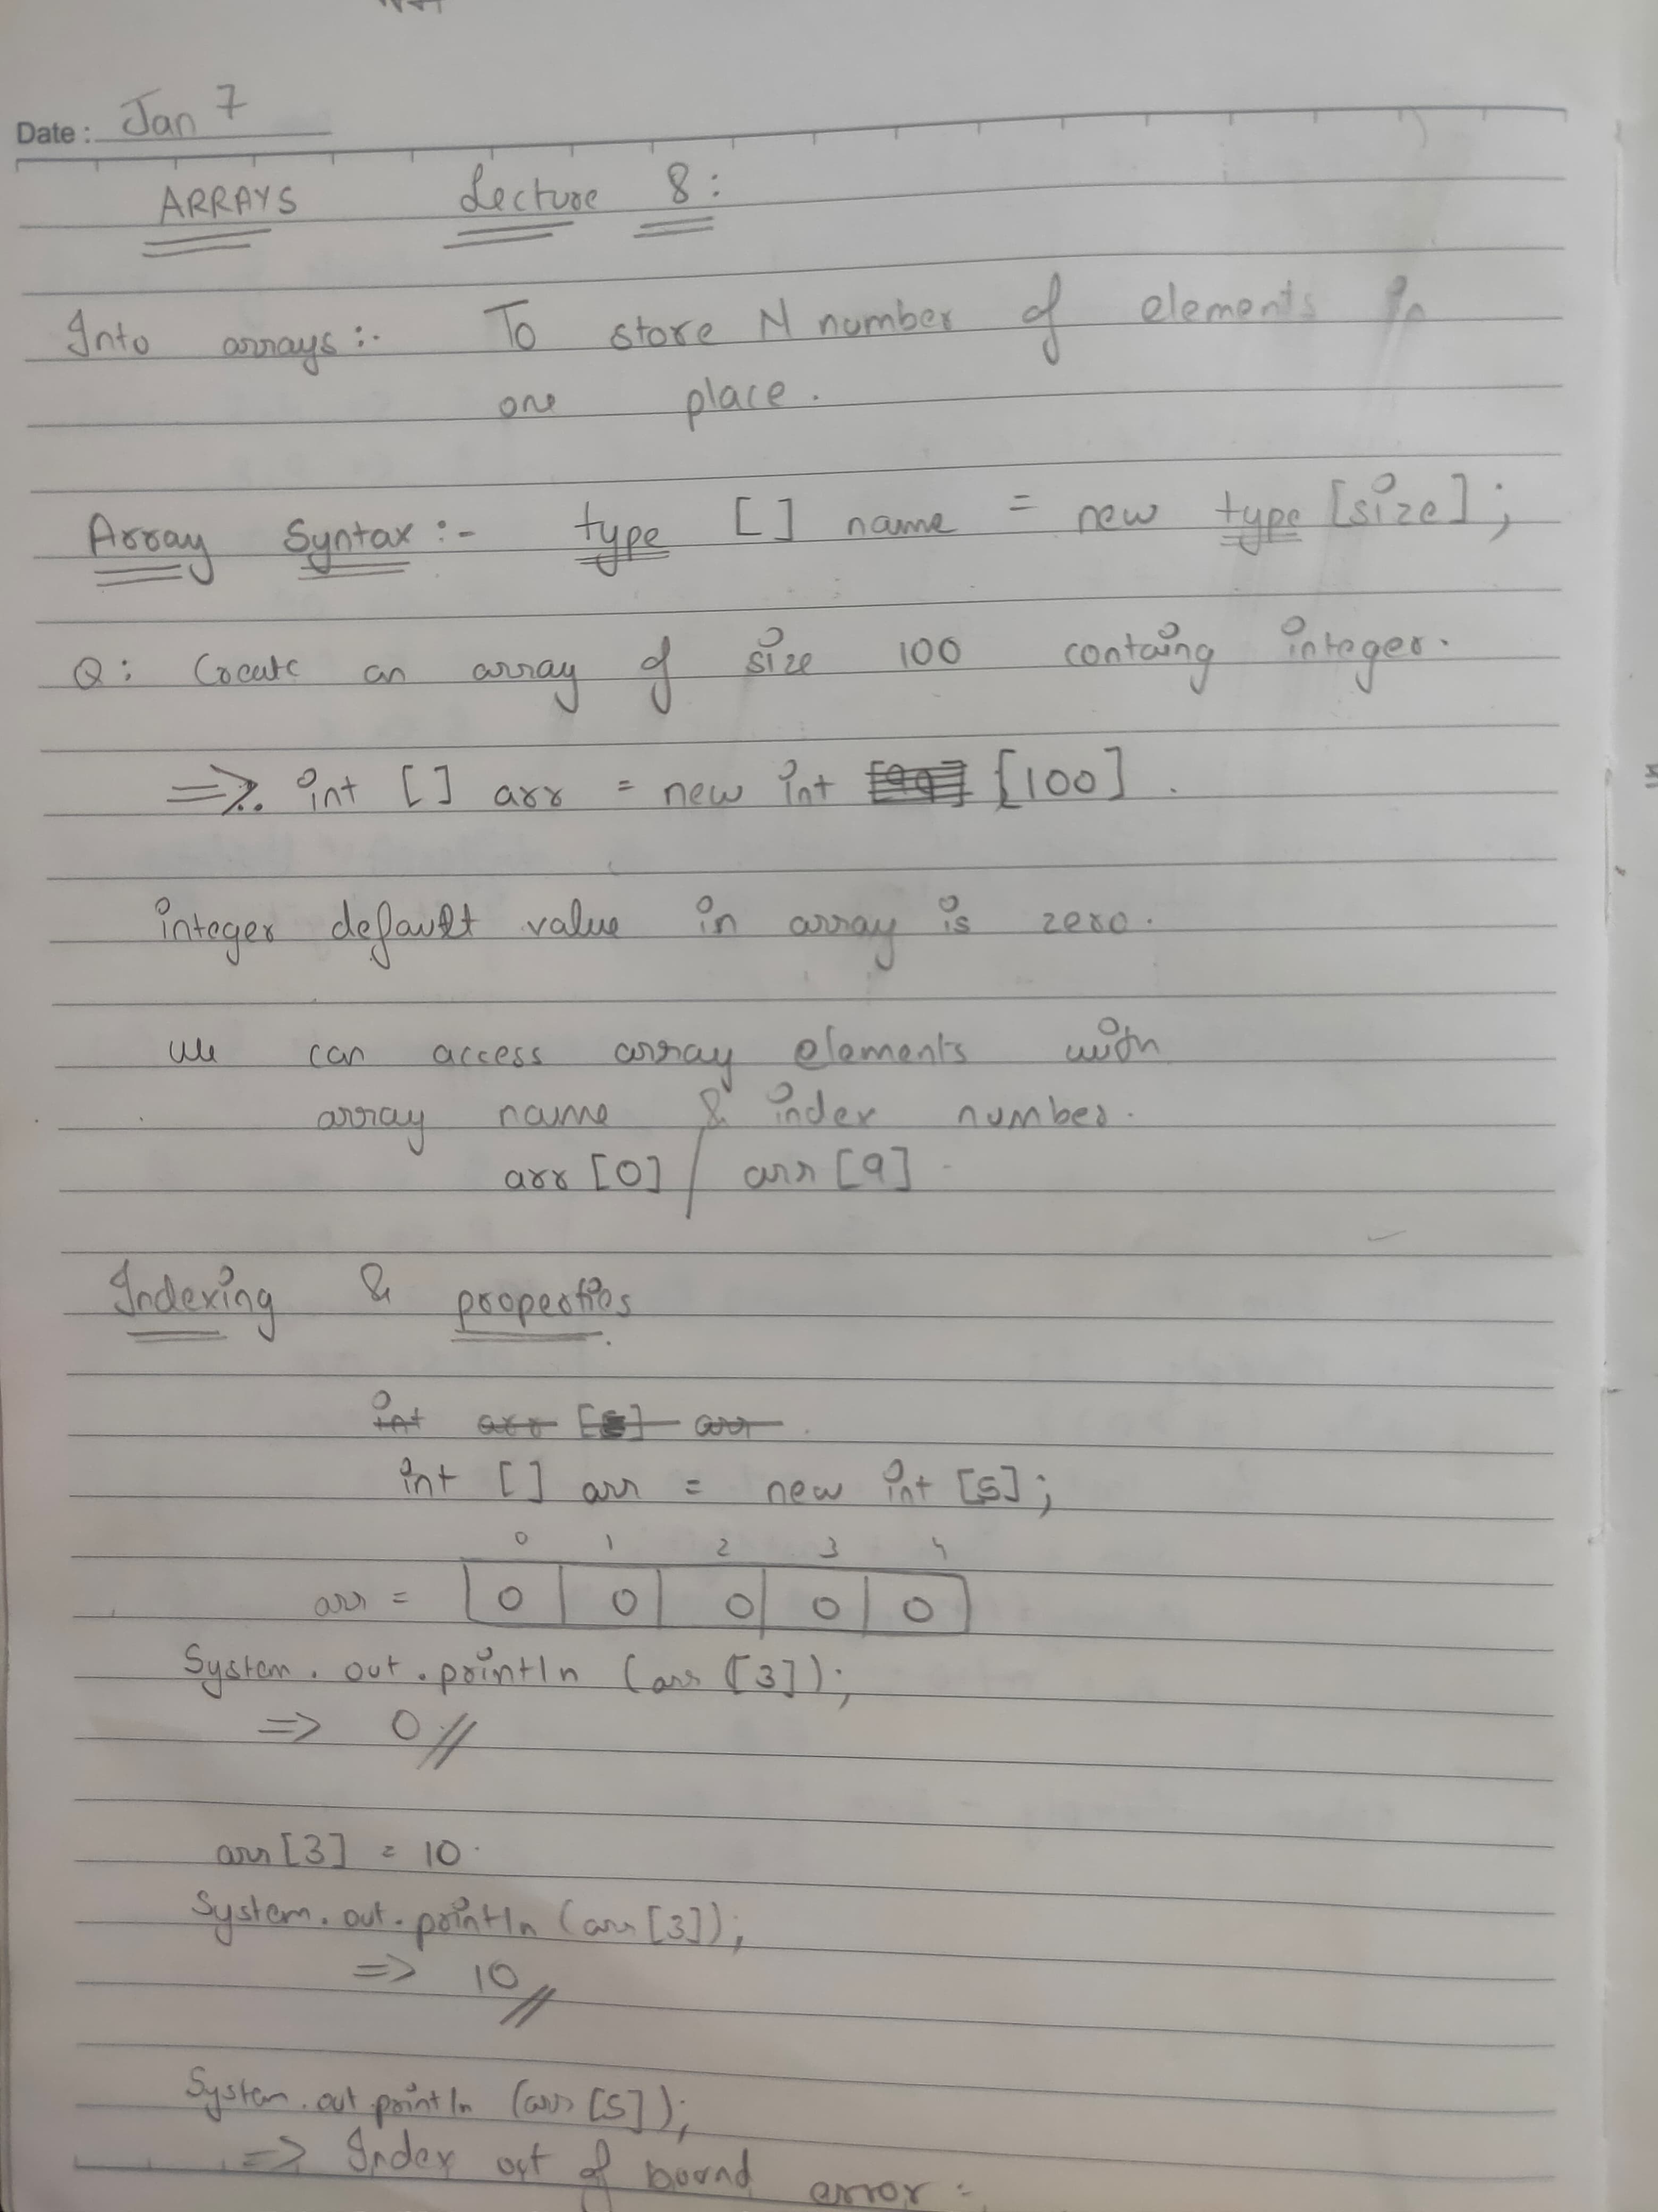 Date: Jan 7
ARRAYS Lecture 8:
Into arrays:- To store N number of elements in
one place.
Array Syntax:- type [] name = new type [size];
Q: Create an array of size 100 containg integer.
=> int [] arr = new int [100].
integer default value in array is zero.
we can access array elements with
array name & index number.
arr [0] / arr [9]
Indexing & properties
int arr [5] arr
int [] arr = new int [5];
0 1 2 3 4
arr = 0 0 0 0 0
System.out.println (arr [3]);
=> 0//
arr [3] = 10.
System.out.println (arr [3]);
=> 10//
System.out.println (arr [5]);
=> Index out of bound error.